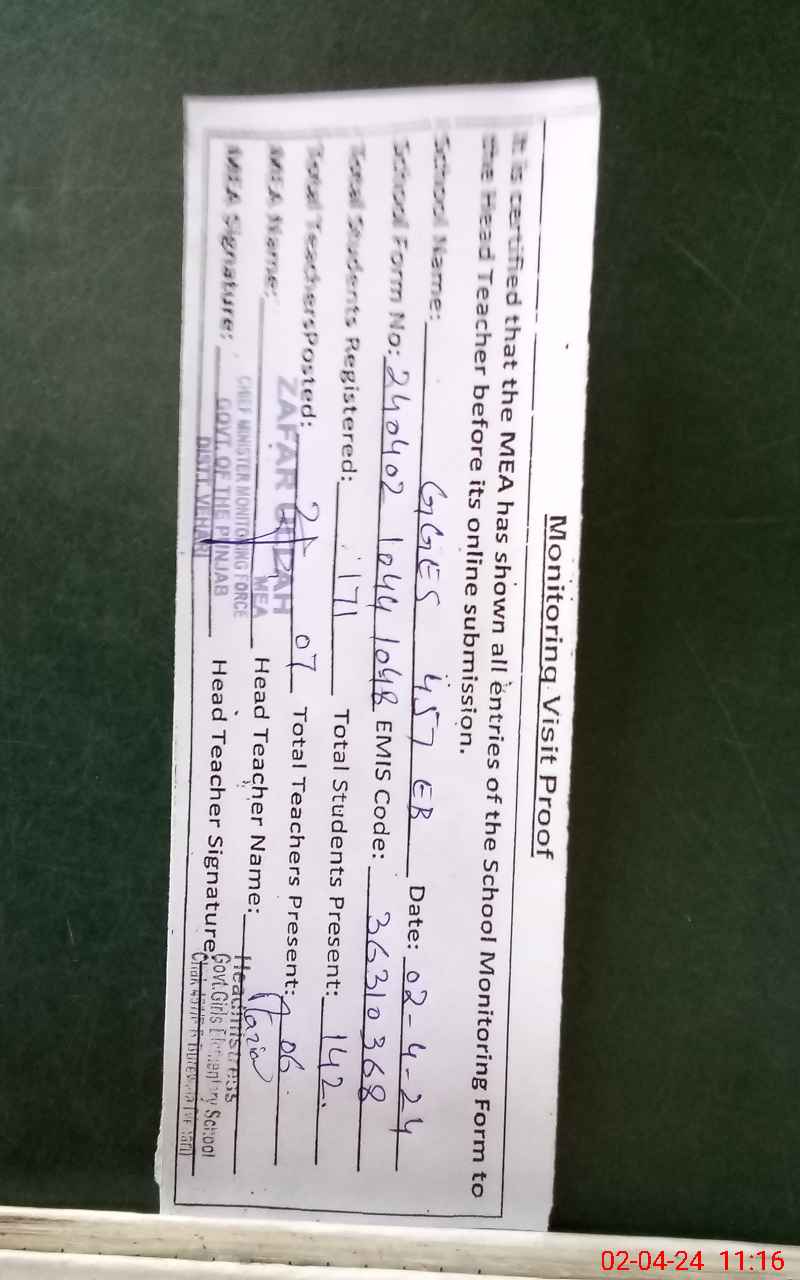 Monitoring Visit Proof
It is certified that the MEA has shown all entries of the School Monitoring Form to
the Head Teacher before its online submission.
School Name: GGES 457 EB Date: 02-4-24
School Form No: 240402 1044 1048 EMIS Code: 36310368
Total Students Registered: 171 Total Students Present: 142
Total Teachers Posted: 07 Total Teachers Present: 06
MEA Name: ZAFAR ULLAH Head Teacher Name:
MEA
CHIEF MINISTER MONITORING FORCE
MEA Signature: GOVT. OF THE PUNJAB Head Teacher Signature:
DISTT. VEHARI
Headmistress
Govt. Girls Elementary School
02-04-24 11:16